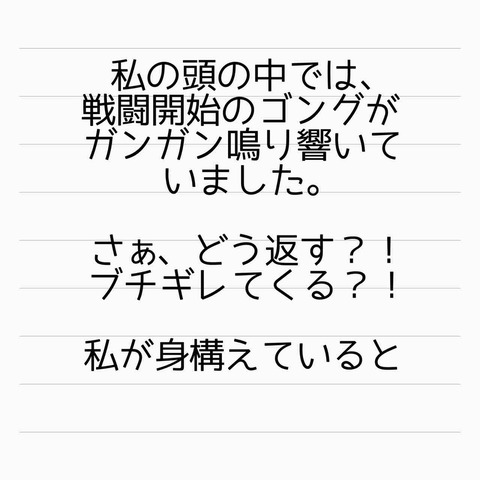 私の頭の中では、
戦闘開始のゴングが
ガンガン鳴り響いて
いました。
さぁ、どう返す？！
ブチギレてくる？！
私が身構えていると